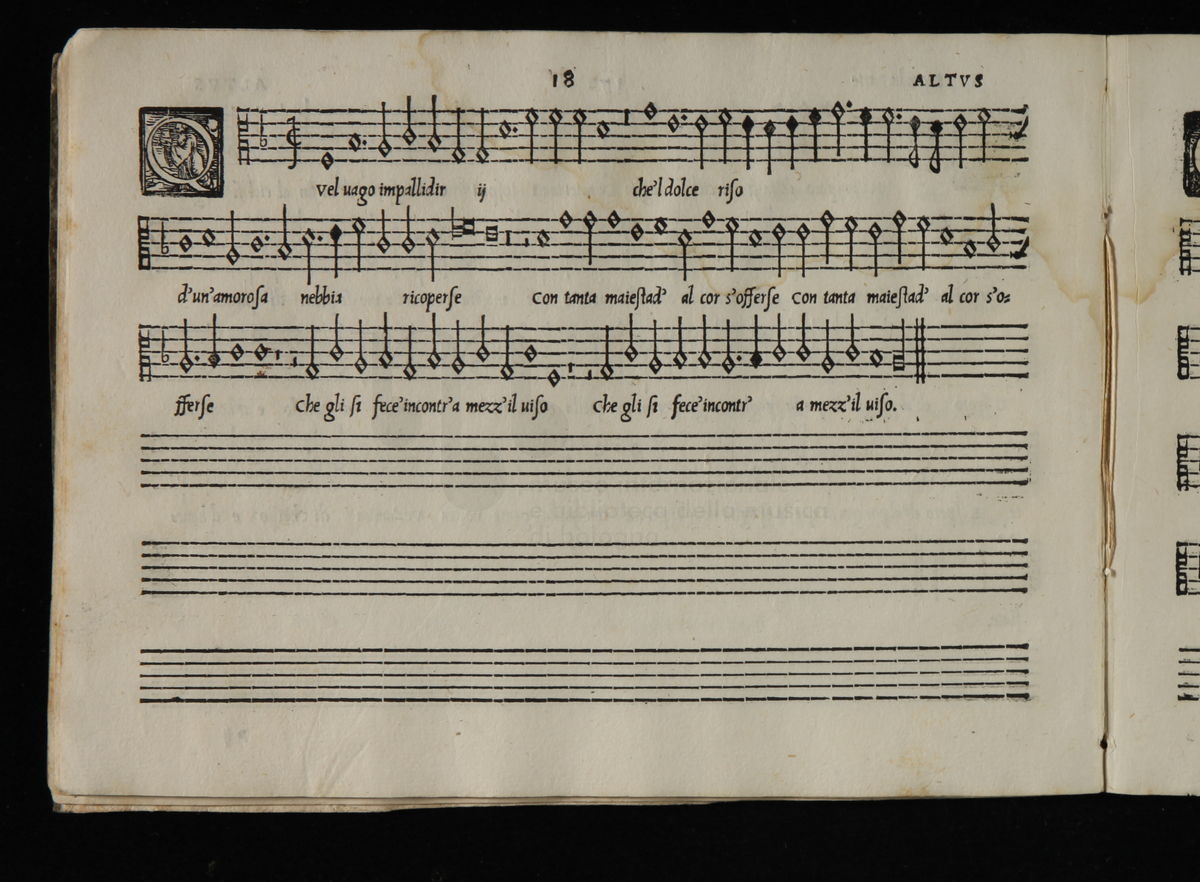 18 ALTVS
Qvel uago impallidir ij che'l dolce riso
d'un'amorosa nebbia ricoperse Con tanta maiestad' al cor s'offerse Con tanta maiestad' al cor s'o=
fferse Che gli si fece'incontr'a mezz'il uiso Che gli si fece'incontr' a mezz'il uiso.
museo internazionale
e biblioteca della musica
di bologna